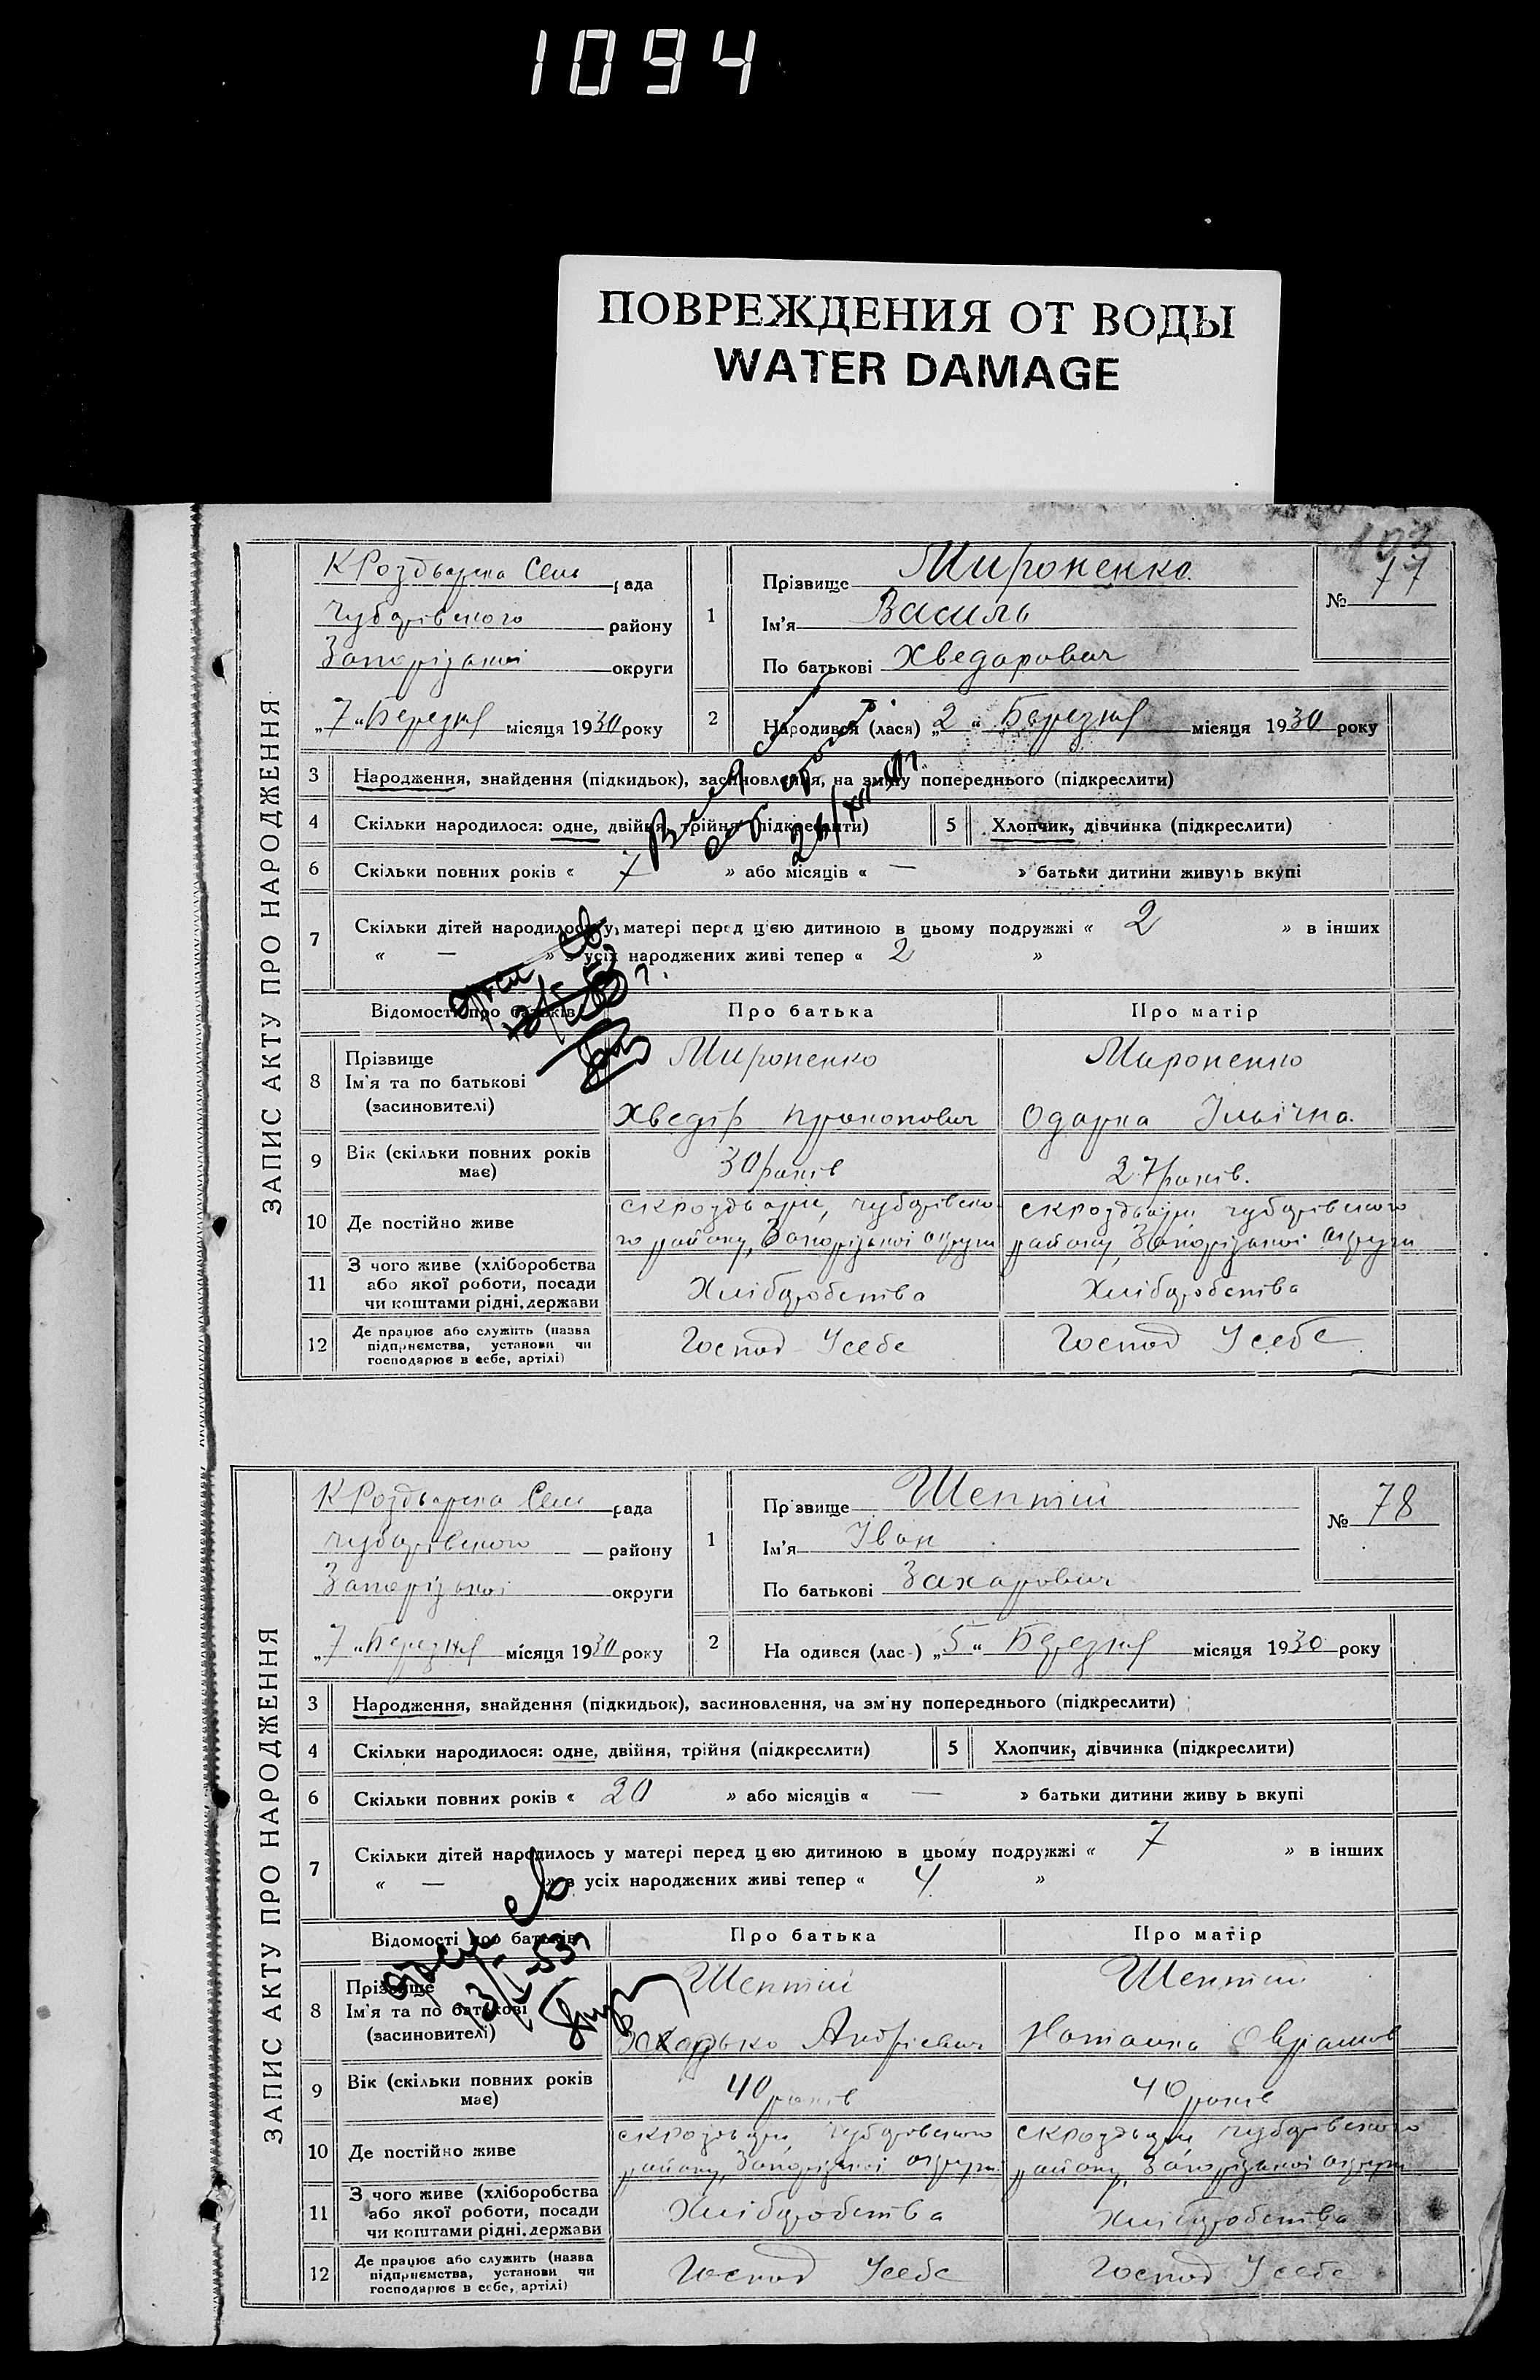 1094
ПОВРЕЖДЕНИЯ ОТ ВОДЫ
WATER DAMAGE
103
ЗАПИС АКТУ ПРО НАРОДЖЕННЯ
КРоздварна Сель рада
Чубарівського району
Запорізької округи
„7" Березня місяця 1930 року
1
Прізвище Мироненко
Ім'я Василь
По батькові Хведорович
№ 77
2 Народився (лася) „2" Березня місяця 1930 року
3 Народження, знайдення (підкидьок), засиновлення, на зміну попереднього (підкреслити)
4 Скільки народилося: одне, двійня, трійня (підкреслити) 5 Хлопчик, дівчинка (підкреслити)
6 Скільки повних років « 7 » або місяців « — » батьки дитини живуть вкупі
7 Скільки дітей народилось у матері перед цією дитиною в цьому подружжі « 2 » в інших
« — » з усіх народжених живі тепер « 2 »
Відомості про батьків Про батька Про матір
8 Прізвище Мироненко Мироненко
Ім'я та по батькові
(засиновителі) Хведір Прокопович Одарка Ільїчна.
9 Вік (скільки повних років має) 30 років 27 років.
10 Де постійно живе
с КРоздвари, Чубарівсько-
го району, Запорізької округи
с КРоздвари Чубарівського
району, Запорізької округи
11 З чого живе (хліборобства
або якої роботи, посади
чи коштами рідні, держави
Хліборобства Хліборобства
12 Де працює або служить (назва
підприємства, установи чи
господарює в себе, артілі)
Господ Усебе Господ Усебе
ЗАПИС АКТУ ПРО НАРОДЖЕННЯ
КРоздварна Сель рада
Чубарівського району
Запорізької округи
„7" Березня місяця 1930 року
1
Прізвище Шептій
Ім'я Іван
По батькові Захарович
№ 78
2 На одився (лас-) „5" Березня місяця 1930 року
3 Народження, знайдення (підкидьок), засиновлення, на зміну попереднього (підкреслити)
4 Скільки народилося: одне, двійня, трійня (підкреслити) 5 Хлопчик, дівчинка (підкреслити)
6 Скільки повних років « 20 » або місяців « — » батьки дитини живу ь вкупі
7 Скільки дітей народилось у матері перед цією дитиною в цьому подружжі « 7 » в інших
« — » з усіх народжених живі тепер « 4 »
Відомості про батьків Про батька Про матір
8 Прізвище Шептій Шептій
Ім'я та по батькові
(засиновителі) Захарько Андрієвич Наталка
9 Вік (скільки повних років має) 40 років 40 років
10 Де постійно живе
с КРоздвари Чубарівського
району, Запорізької округи
с КРоздвари Чубарівського
району, Запорізької округи
11 З чого живе (хліборобства
або якої роботи, посади
чи коштами рідні, держави
Хліборобства Хліборобства
12 Де працює або служить (назва
підприємства, установи чи
господарює в себе, артілі)
Господ Усебе Господ Усебе